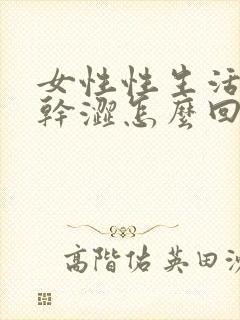 女性性生活
幹澀怎麼回
高階佑英田